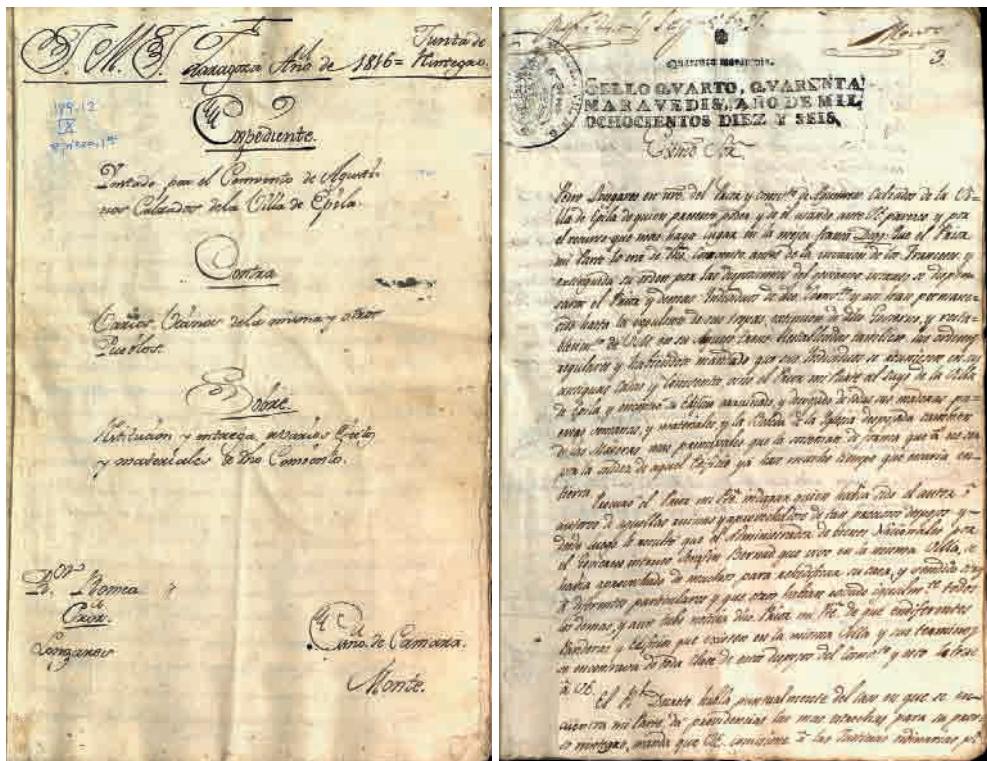 J. M. J.
Zaragoza Año de 1816=
Junta de
Reintegros.
149.12
IX
Expediente.
Instado por el Convento de Agusti-
nos Calzados dela Villa de Epila.
Contra
Varios Vecinos dela misma y otros
Pueblos.
Sobre
Restitucion y entrega varios efectos
y materiales de dho Convento.
Romea
Pror.
Longares
Esno. de Camara.
Monte.
3
Quarenta maravedis.
SELLO QVARTO, QVARENTA
MARAVEDIS, AÑO DE MIL
OCHOCIENTOS DIEZ Y SEIS,
Exmo Sor.
Pedro Longares en nre. del Prior y convto. de Agustinos Calzados de la Vi-
lla de Epila de quien presento poder y de el usando ante V.E. parezco y por
el recurso que mas haya lugar en la mejor forma Digo: Que el Prior
mi Parte lo era de dho. Convento antes de la invasion de los Franceses y
extinguida su orden por las disposiciones del govierno intruso se disper-
saron el Prior y demas Individuos de dho Convto. y asi han permane-
cido hasta la expulsion de sus tropas, extincion de dho Govierno, y resta-
blecimto. de
regulares y habiendose mandado que sus Individuos se reuniesen en sus
antiguas Casas y Conventos vino el Prior mi Parte al suyo de la Villa
de Epila y encontró el Edificio arruinado, y despojado de todas sus maderas, pu-
ertas, ventanas, y materiales, y la Boveda de la Iglesia despojada tambien
de las Maderas mas principales que la sostenian de forma que á no ser
por la solidez de aquel Edificio ya hace mucho tiempo que estaria en
tierra.
Procuró el Prior mi Pte. indagar quien habia sido el autor, ó
autores de aquellas ruinas y
desde luego le resultó que el Administrador de bienes Nacionales por
el Govierno intruso Joaquin Bernad que vive en la misma Villa, se
habia aprovechado de muchos para reedificar su casa, y vendido otros
á diferentes particulares y que otros habian
los demas, y aun tubo noticia dho. Prior mi Pte. de que en diferentes
Corderas y edificios que existen en la misma Villa y sus terminos
se encontraban de toda clase de estos despojos del Convto. y esto le trae
á V.E.
El Rl. Decreto habla puntualmente del caso en que se en-
cuentra mi Parte, da providencias las mas estrechas para su pron-
to reintegro, manda que V.E. comisione á las Justicias ordinarias